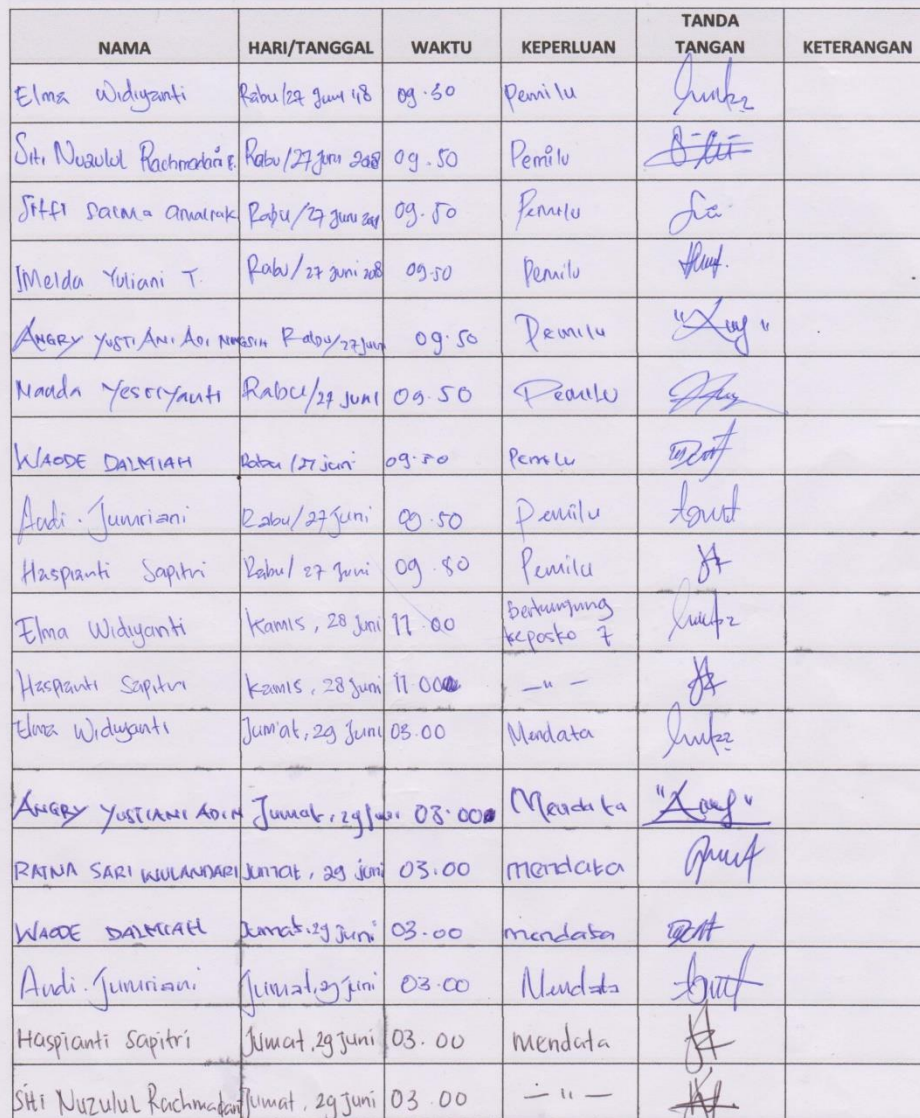 NAMA HARI/TANGGAL WAKTU KEPERLUAN TANDA TANGAN KETERANGAN
Elma Widiyanti Rabu/27 Juni '18 09.50 Pemilu
Siti Nuzulul Rachmadani E. Rabu/27 Juni 2018 09.50 Pemilu
Sitti Salma Rabu/27 Juni 09.50 Pemilu
IMelda Yuliani T. Rabu/27 Juni 2018 09.50 Pemilu
ANGRY YUSTIANI ADI NINGSIH Rabu/27 Juni 09.50 Pemilu
Nanda Yestryanti Rabu/27 Juni 09.50 Pemilu
WAODE DALMIAH Rabu/27 juni 09.50 Pemilu
Andi. Jumriani Rabu/27 Juni 09.50 Pemilu
Haspianti Sapitri Rabu/ 27 Juni 09.50 Pemilu
Elma Widiyanti Kamis, 28 Juni 11.00 Berkunjung keposko 7
Haspianti Sapitri Kamis, 28 Juni 11.00 — " —
Elma Widiyanti Jum'at, 29 Juni 03.00 Mendata
ANGRY YUSTIANI ADIN Jumat, 29 Juni 03.00 Mendata
RATNA SARI WULANDARI Jumat, 29 juni 03.00 mendata
WAODE DALMIAH Jumat, 29 Juni 03.00 mendata
Andi. Jumriani Jumat, 29 juni 03.00 Mendata
Haspianti Sapitri Jumat, 29 Juni 03.00 mendata
Siti Nuzulul Rachmadani Jumat, 29 juni 03.00 — " —